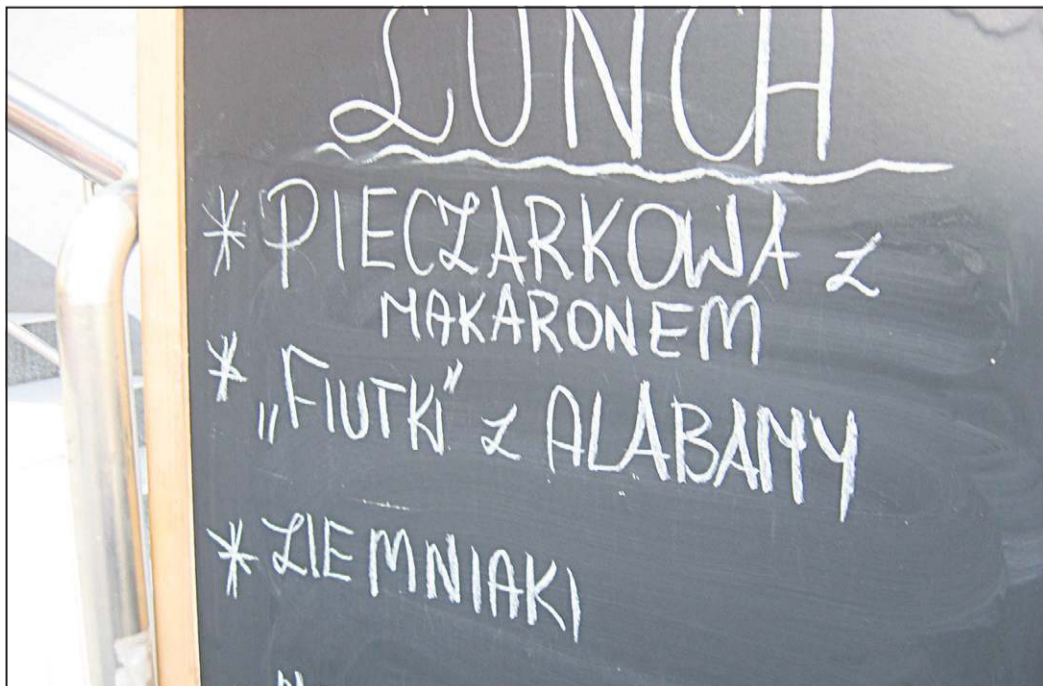 LUNCH
* PIECZARKOWA Z
MAKARONEM
* „FIUTKI" Z ALABAMY
* ZIEMNIAKI